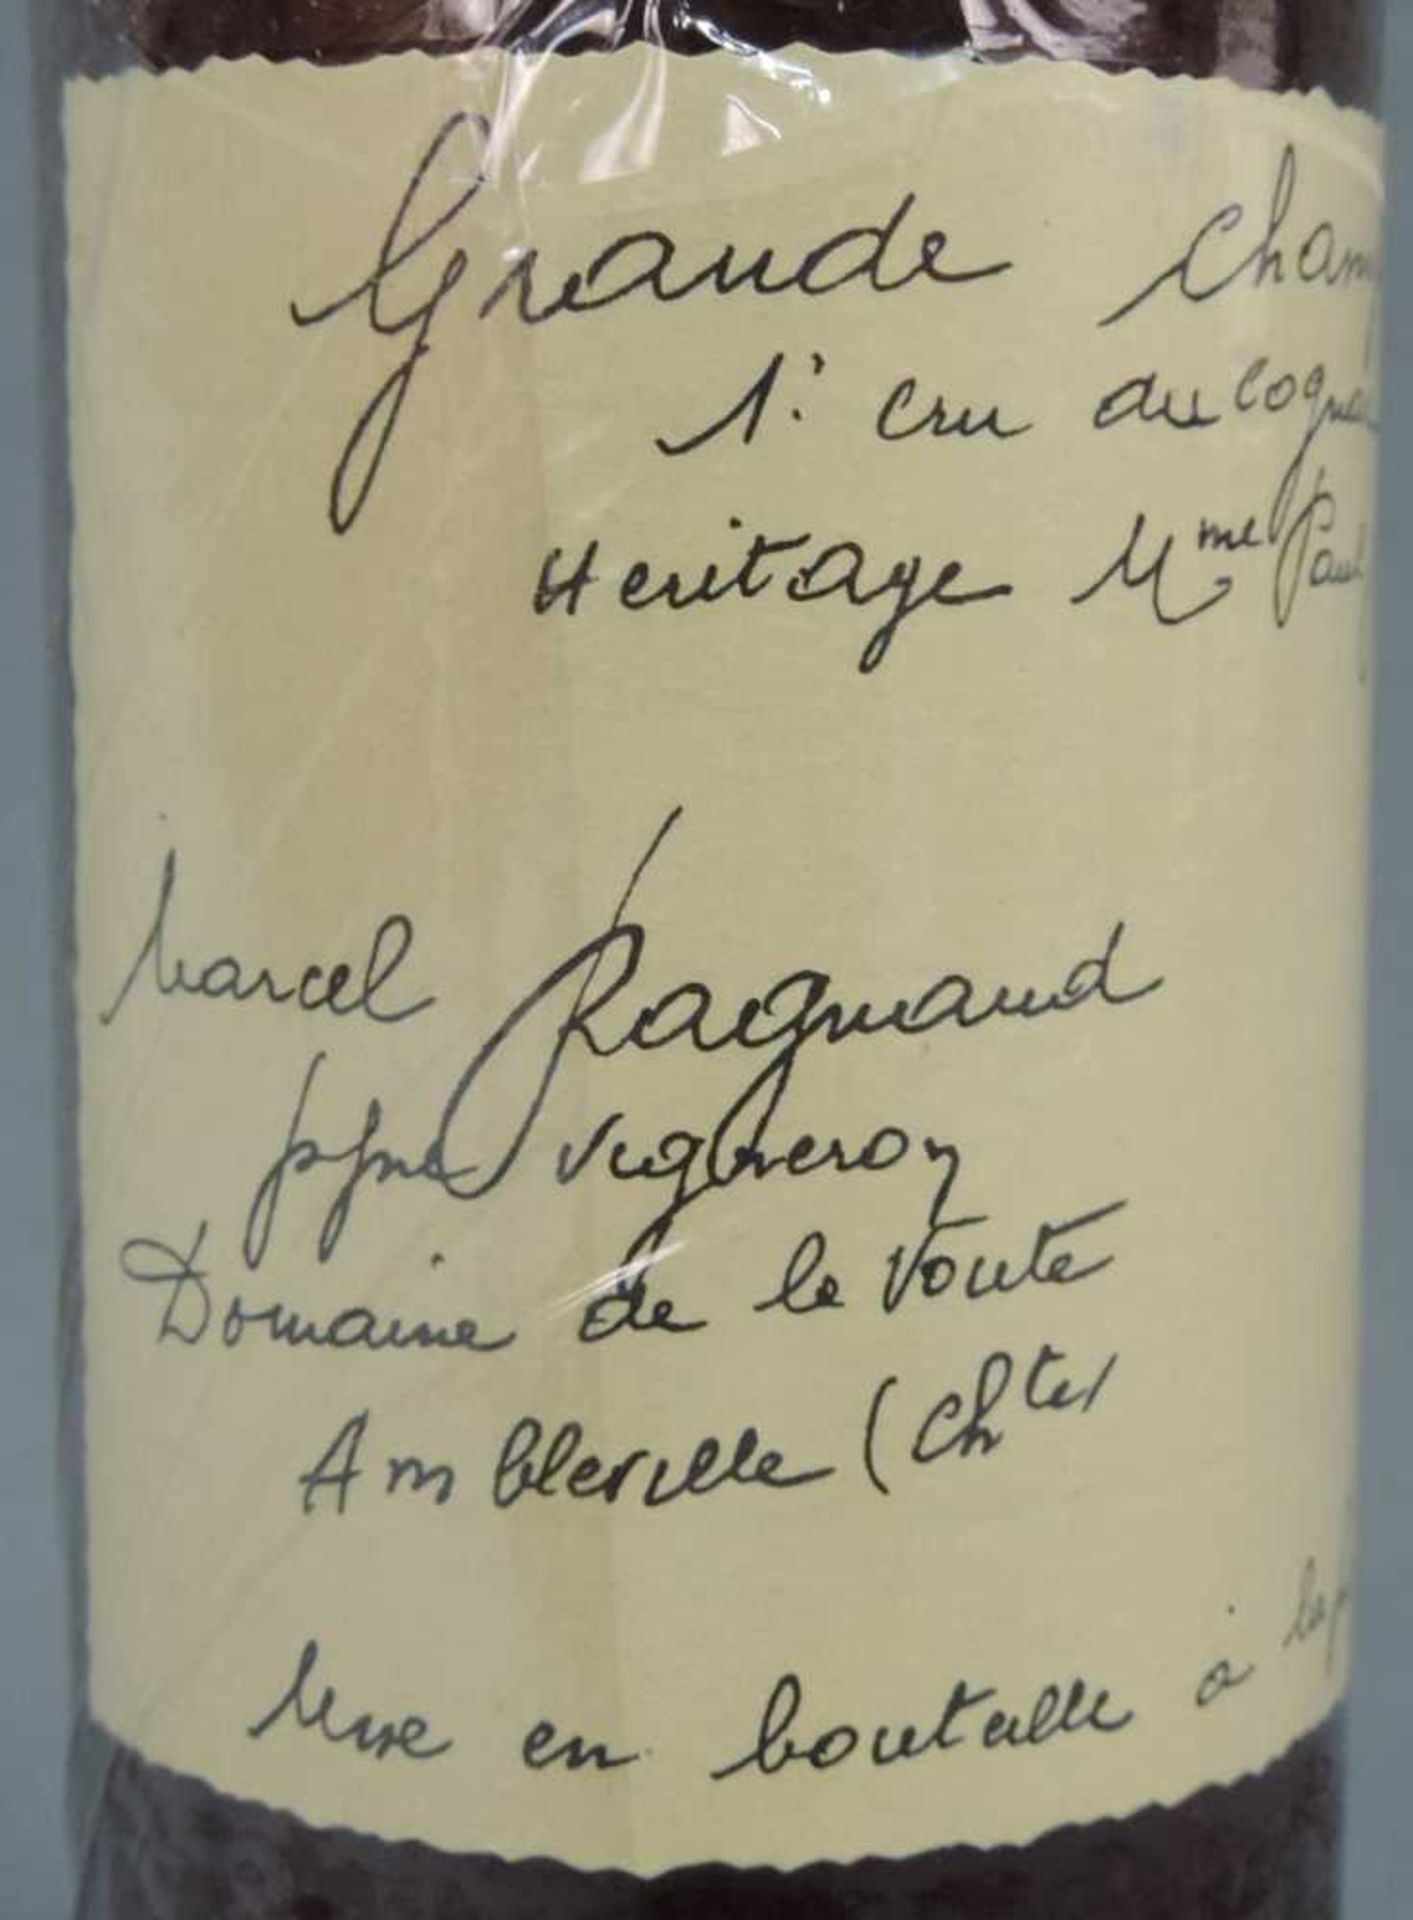 Grande Cham
1er cru du Cogna
Heritage Mme Paul
Marcel Ragnaud
ppre Vigneron
Domaine de la Voute
Ambleville (Chte)
Mise en bouteille à la p